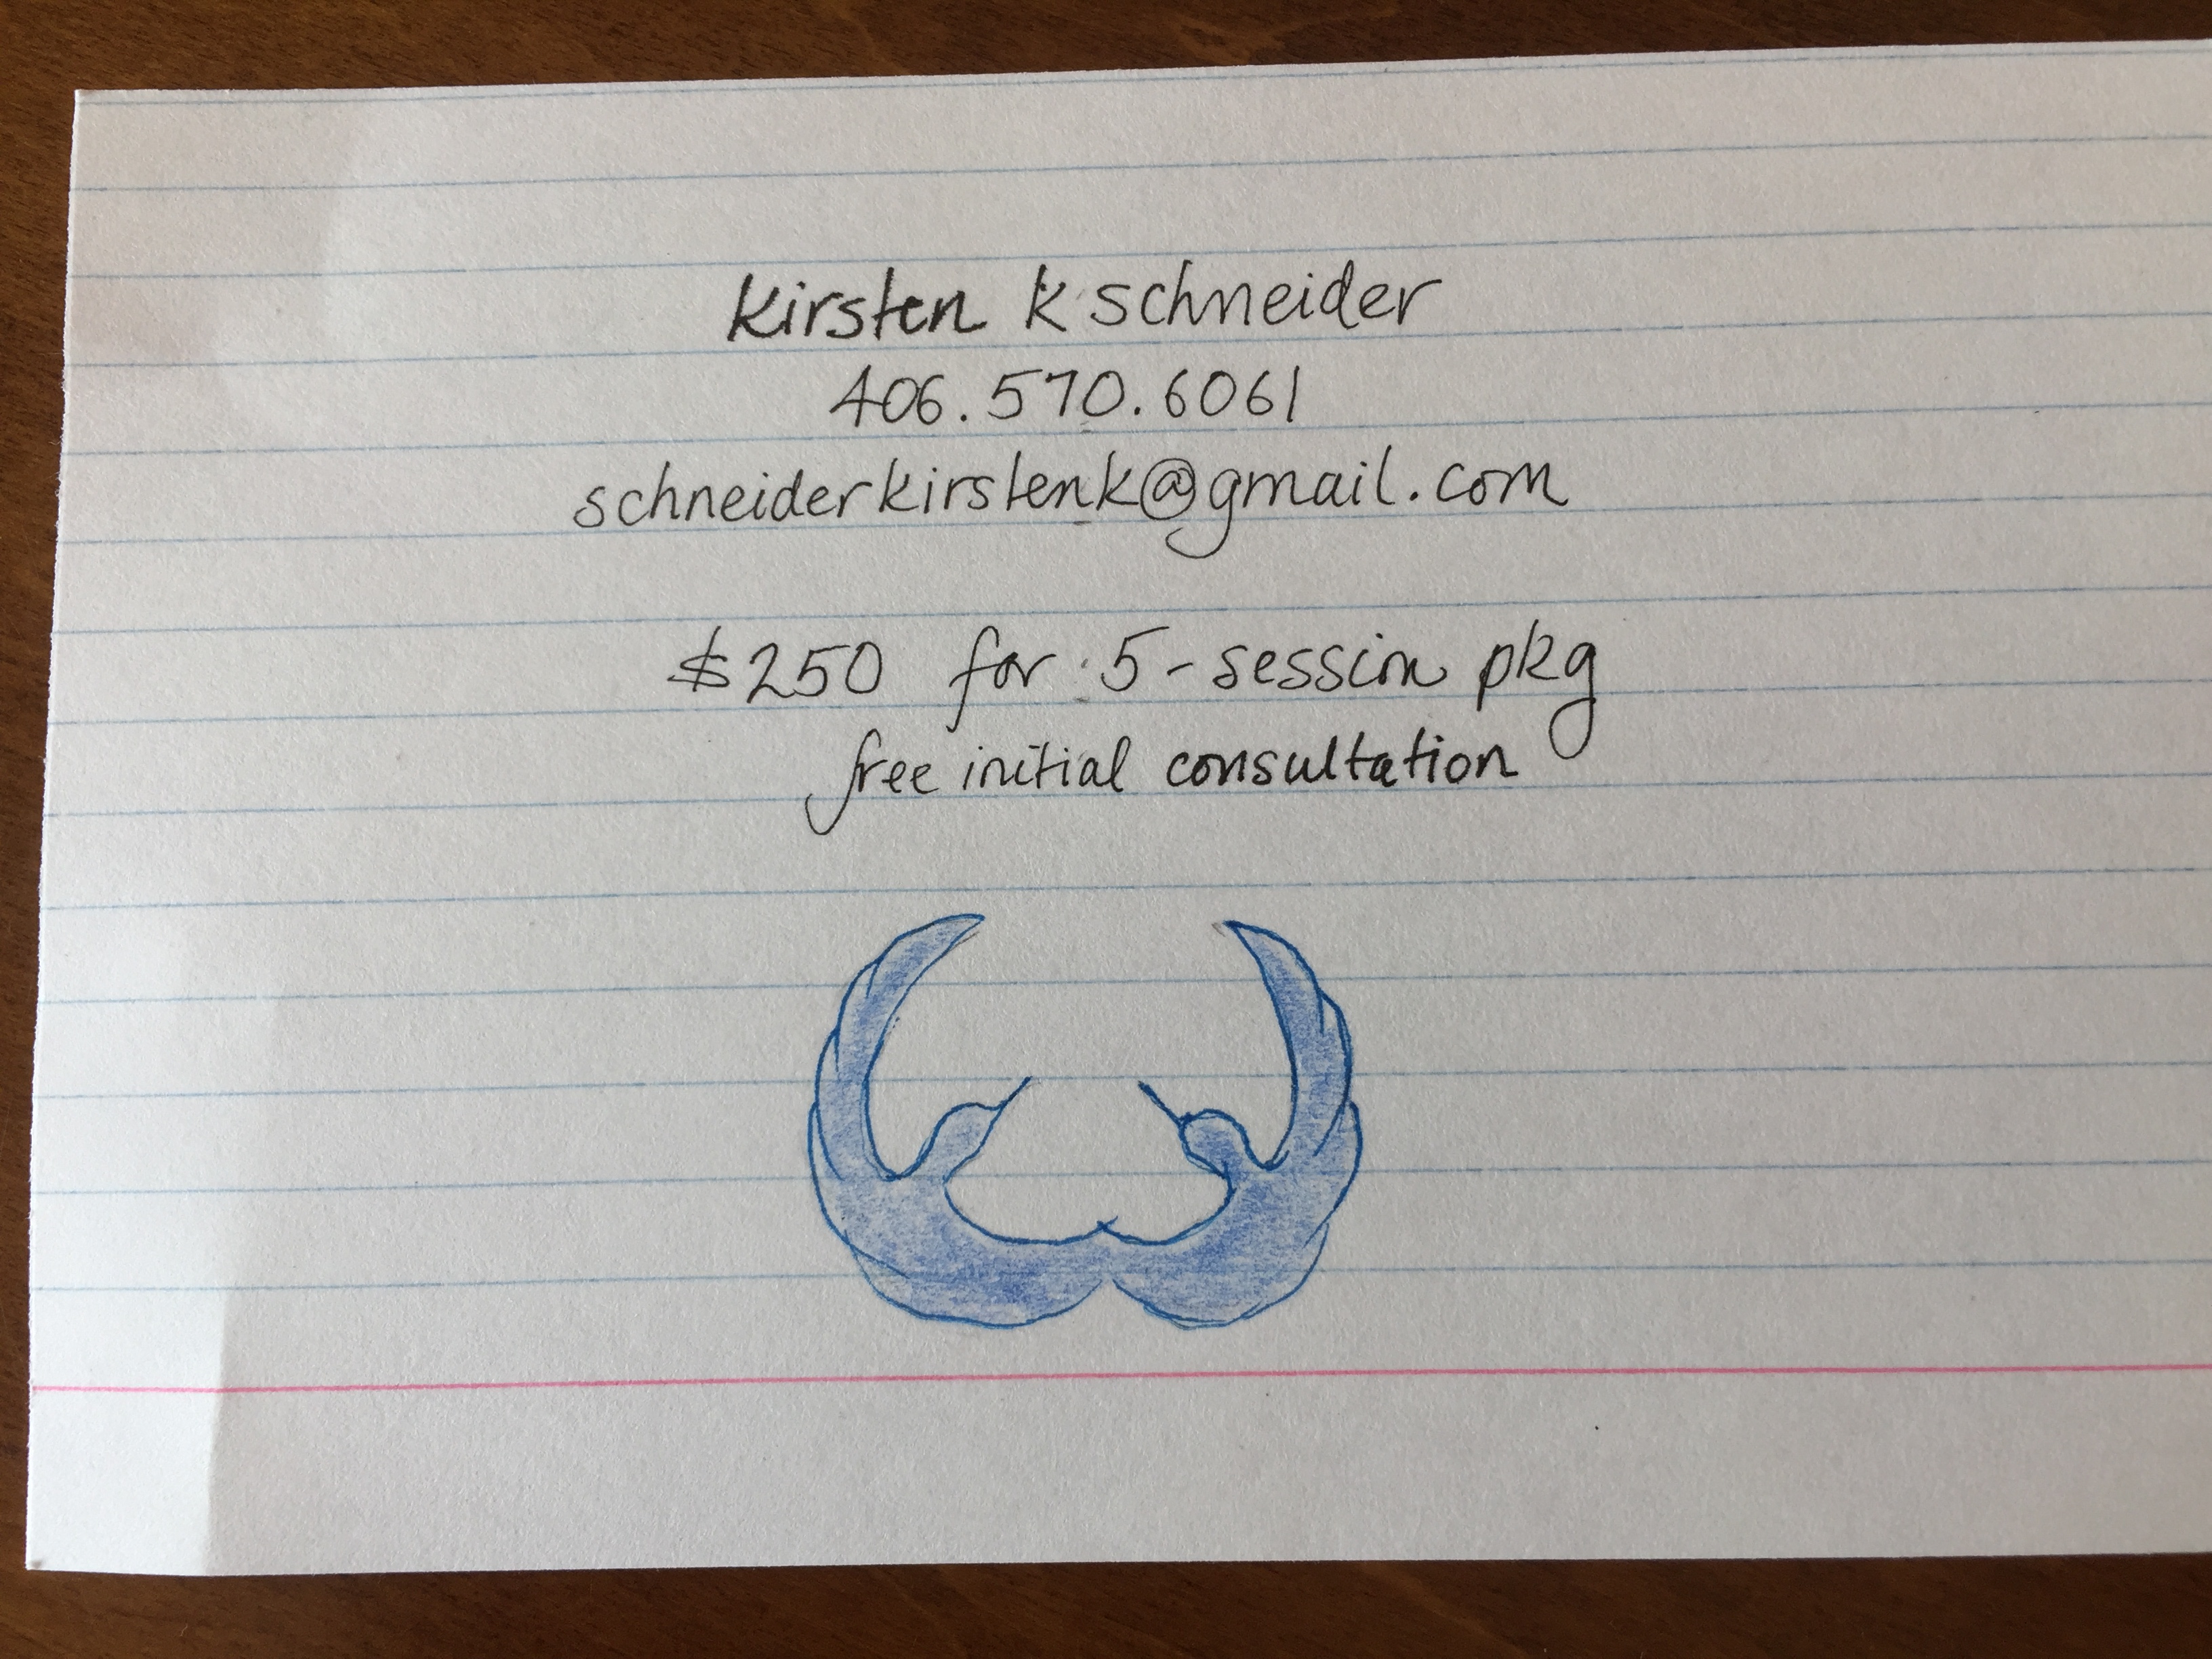 Kirsten K Schneider
406.570.6061
schneiderkirstenk@gmail.com
$250 for 5-session pkg
free initial consultation